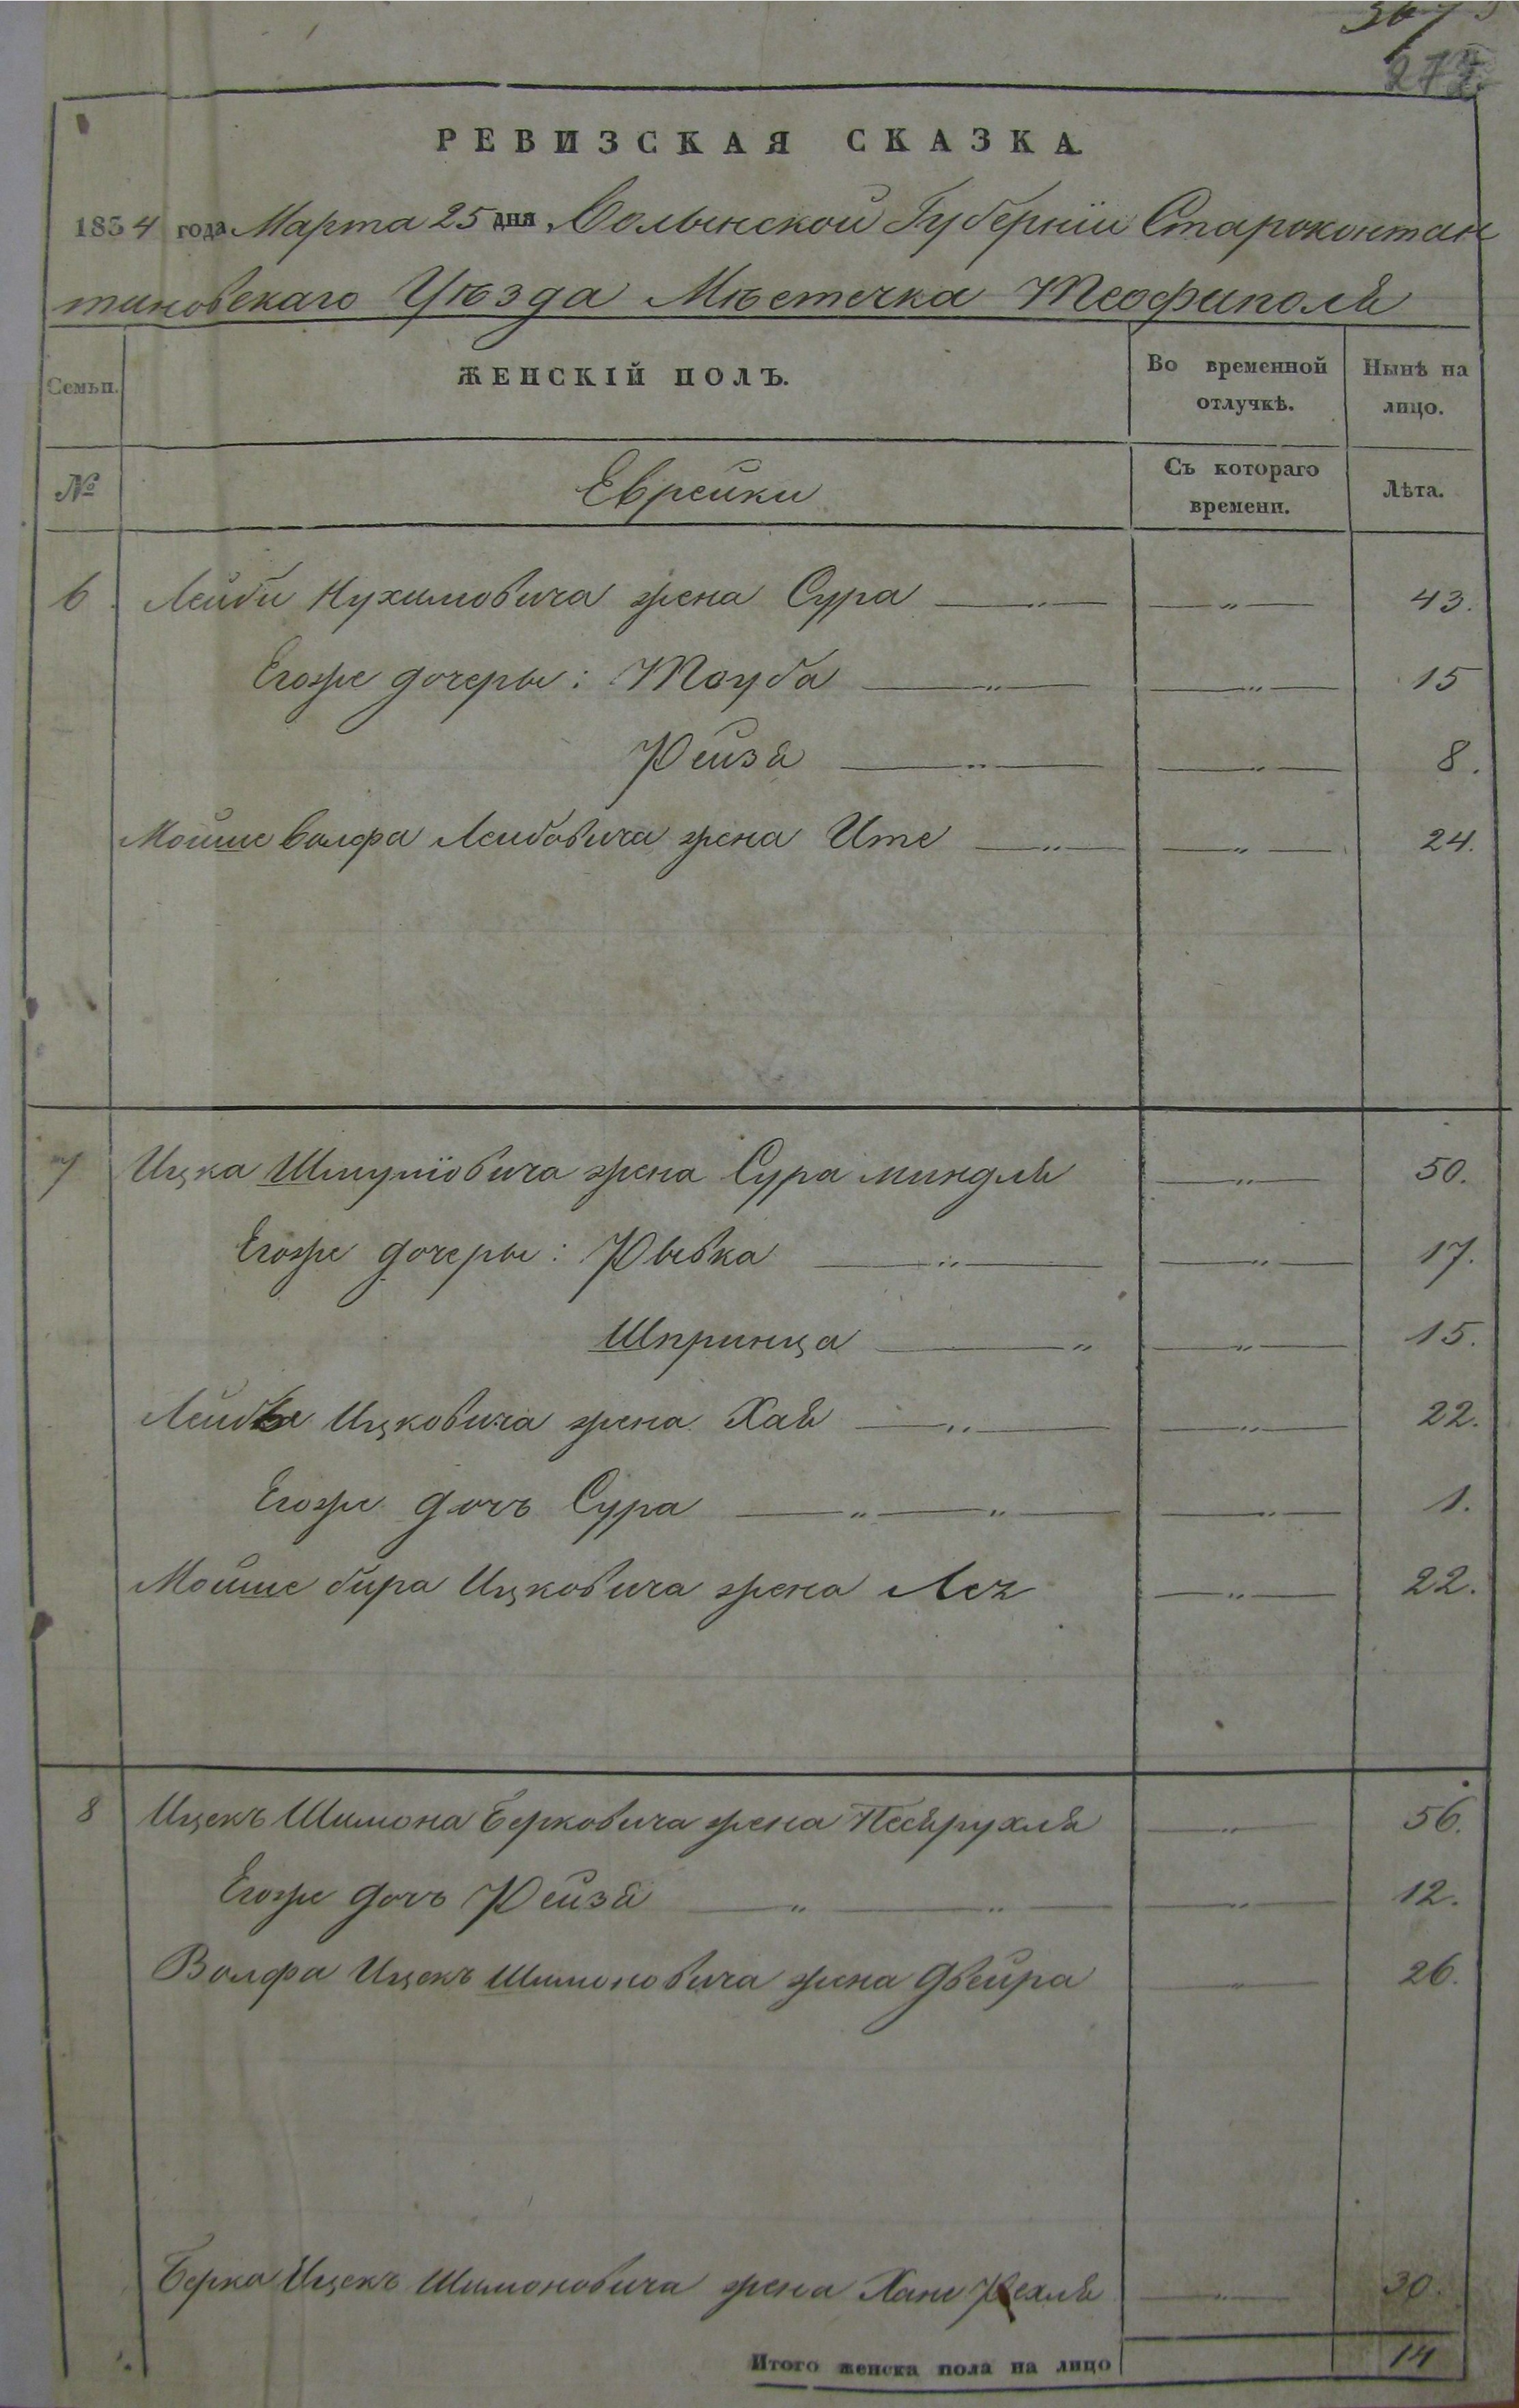 273
РЕВИЗСКАЯ СКАЗКА
1834 года Марта 25 дня Волынской Губернiи Староконтан
тиновскаго Уѣзда Мѣстечка Теофиполя
Семьи. ЖЕНСКІЙ ПОЛЪ. Во временной отлучкѣ. Нынѣ на лицо.
№ Еврейки Съ котораго времени. Лѣта.
6 Лейби Нухимовича жена Сура —„— —„— 43.
Егоже дочеры: Тоуба —„— —„— 15
Рейзя —„— —„— 8.
Мойше Волфа Лейбовича жена Ите —„— —„— 24.
7 Ицка Шмулiовича жена Сура миндля —„— 50.
Егоже дочеры: Рывка —„— —„— 17.
Шпринца —„ —„— 15.
Лейбы Ицковича жена Хая —„— —„— 22.
Егоже дочъ Сура —„—„— —„— 1.
Мойше бира Ицковича жена Лея —„— 22.
8 Ицекъ Шимона Берковича жена Песярухля —„— 56.
Егоже дочъ Рейзя —„—„— —„— 12.
Волфа Ицекъ Шимоновича жена Двейра —„— 26.
Берка Ицекъ Шимоновича жена Хане Рехля —„— 30.
Итого женска пола на лицо 14